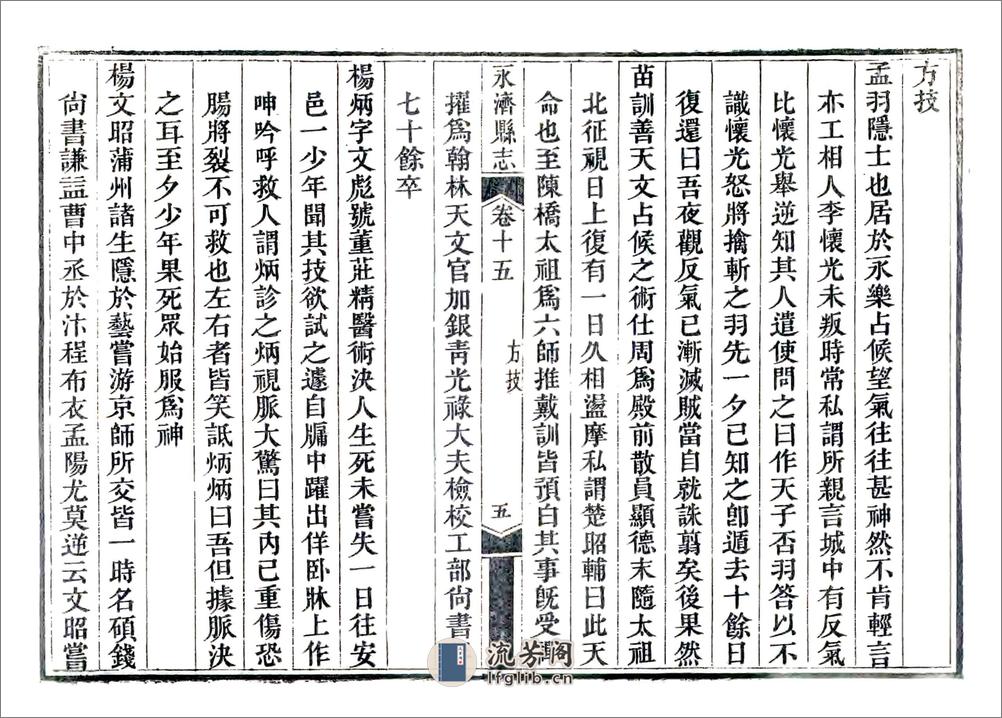 方技
孟羽隱士也居於永樂占候望氣往往甚神然不肯輕言
亦工相人李懷光未叛時常私謂所親言城中有反氣
比懷光舉逆知其人遣使問之曰作天子否羽答以不
識懷光怒將擒斬之羽先一夕已知之卽遁去十餘日
復還曰吾夜觀反氣已漸滅賊當自就誅翦矣後果然
苗訓善天文占候之術仕周爲殿前散員顯德末隨太祖
北征視日上復有一日久相盪摩私謂楚昭輔曰此天
命也至陳橋太祖爲六師推戴訓皆預白其事旣受
永濟縣志
卷十五
方技
五
擢爲翰林天文官加銀青光祿大夫檢校工部尙書
七十餘卒
楊炳字文彪號董莊精醫術決人生死未嘗失一日往安
邑一少年聞其技欲試之遽自牖中躍出佯卧牀上作
呻吟呼救人謂炳診之炳視脈大驚曰其內已重傷恐
腸將裂不可救也左右者皆笑詆炳炳曰吾但據脈決
之耳至夕少年果死眾始服爲神
楊文昭蒲州諸生隱於藝嘗游京師所交皆一時名碩錢
尙書謙益曹中丞於汴程布衣孟陽尤莫逆云文昭嘗
流芳阁
lfglib.cn